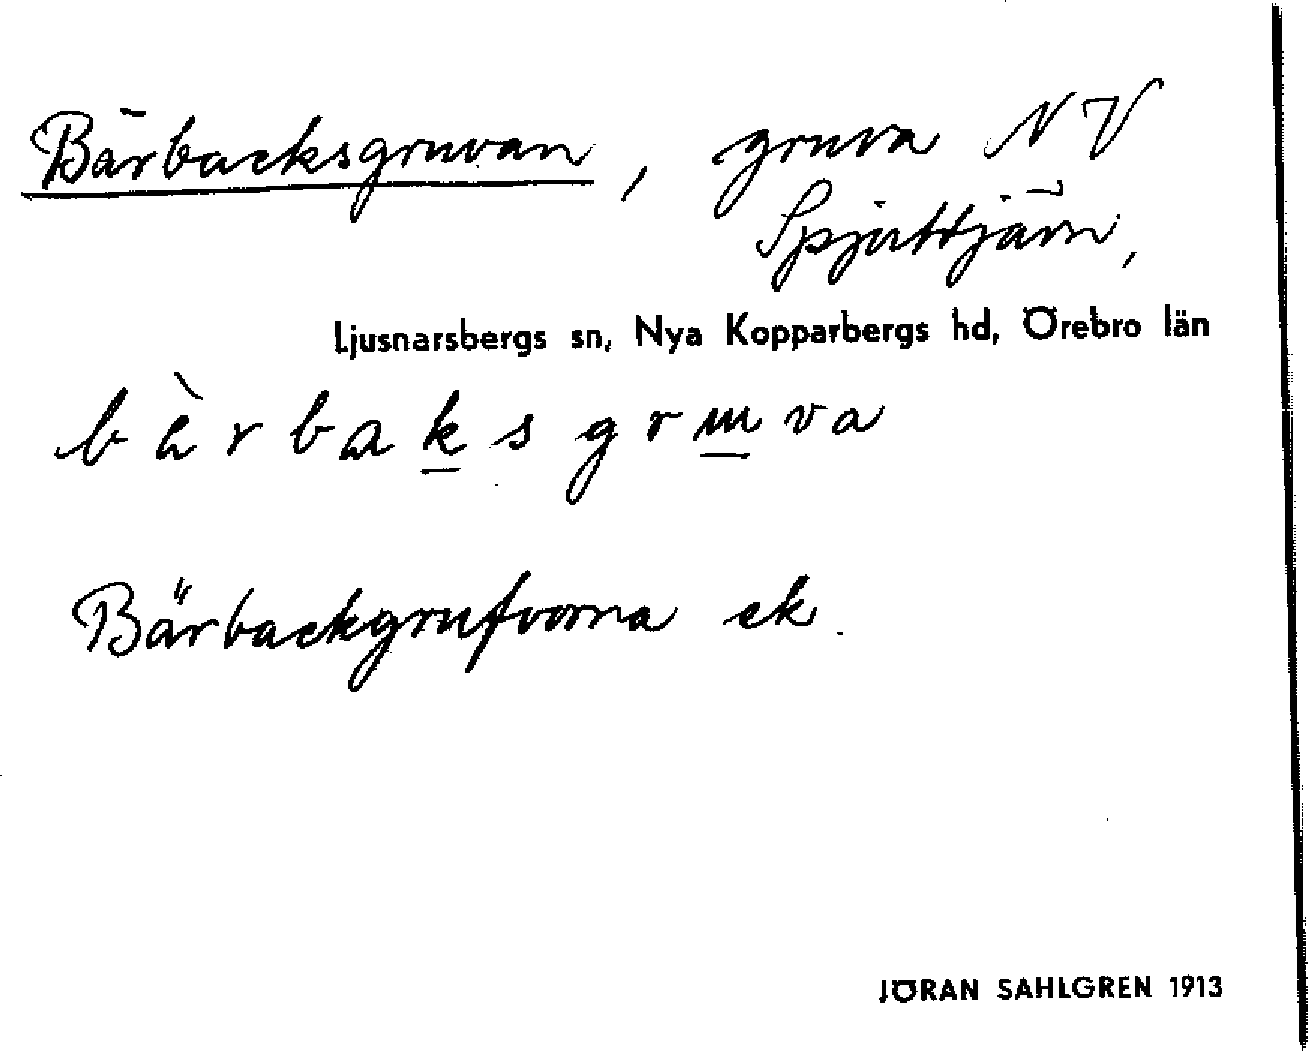 Bärbacksgruvan, gruva NV
Spjuttjärn,
Ljusnarsbergs sn, Nya Kopparbergs hd, Örebro län
bärbaksgruva
Bärbackgrufvorna ek.
JÖRAN SAHLGREN 1913